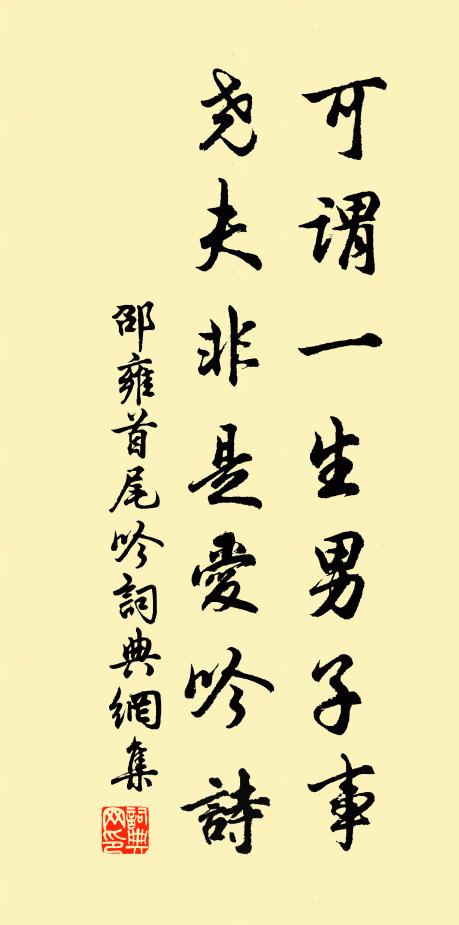 可謂一生男子事
尧夫非是愛吟詩
邵雍首尾吟詞典網集
詞典网印